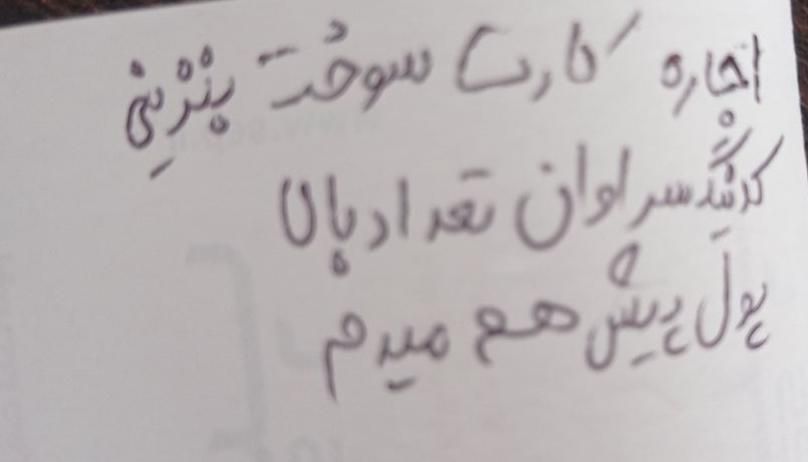 اجاره کارت سوخت بنزینی
سراوان تعداد بالا
پول پیش هم میدم